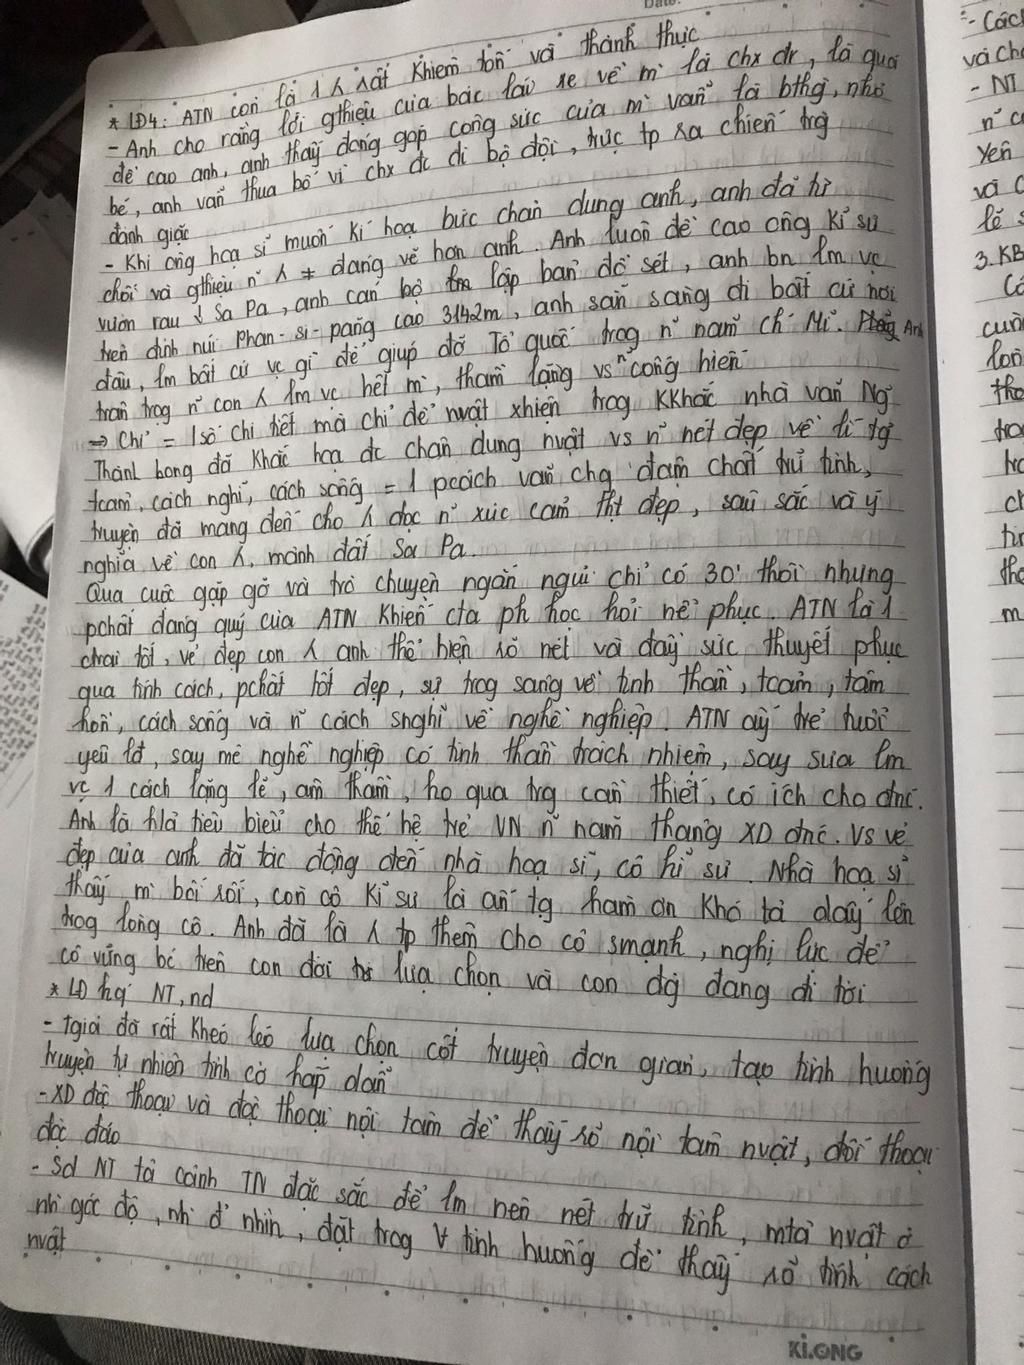 Date:
* LĐ4: ATN còn là 1 λ rất khiêm tốn và thành thực
- Anh cho rằng lời gthiệu của bác lái xe về mì là chx đr, là quá
đề cao anh, anh thấy đóng góp công sức của mì vẫn là bthg, nhỏ
bé, anh vẫn thua bố vì chx đc đi bộ đội, trực tp ra chiến trg
đánh giặc
- Khi ông hoạ sĩ muốn kí hoạ bức chân dung anh, anh đã từ
chối và gthiệu n~ λ ≠ đáng vẽ hơn anh. Anh luôn đề cao ông kĩ sư
vườn rau ↓ Sa Pa, anh cán bộ lập bản đồ sét, anh bn lm vc
trên đỉnh núi Phan-si-păng cao 3142m, anh sẵn sàng đi bất cứ nơi
đâu, lm bất cứ vc gì để giúp đỡ Tổ quốc trog n~ năm ch Mĩ. Anh
trân trọg n~ con λ lm vc hết mì, thầm lặng vs n~ cống hiến
⇒ Chỉ = 1 số chi tiết mà chỉ để nvật xhiện trog kkhắc nhà văn Ng~
Thành Long đã khắc hoạ đc chân dung nvật vs n~ nét đẹp về lí tg
tcảm, cách nghĩ, cách sống = 1 pcách văn chg đậm chất trữ tình,
truyện đã mang đến cho λ đọc n~ xúc cảm tht đẹp, sâu sắc và ý
nghĩa về con λ, mảnh đất Sa Pa.
Qua cuộc gặp gỡ và trò chuyện ngắn ngủi chỉ có 30' thôi nhưng
pchất đáng quý của ATN khiến cta ph học hỏi nể phục. ATN là 1
chrai tốt, vẻ đẹp con λ anh thể hiện rõ nét và đầy sức thuyết phục
qua tính cách, pchất tốt đẹp, sự trog sáng về tinh thần, tcảm, tâm
hồn, cách sống và n~ cách snghĩ về nghề nghiệp. ATN ấy trẻ tuổi
yêu lđ, say mê nghề nghiệp có tinh thần trách nhiệm, say sưa lm
vc 1 cách lặng lẽ, âm thầm, ho qua trg cần thiết, có ích cho đnc.
Anh là hả tiêu biểu cho thế hệ trẻ VN n~ năm tháng XD đnc. Vs vẻ
đẹp của anh đã tác động đến nhà hoạ sĩ, cô kĩ sư. Nhà hoạ sĩ
thấy mì bối rối, còn cô kĩ sư là ấn tg hàm ơn khó tả dấy lên
trog lòng cô. Anh đã là λ tp thêm cho cô smạnh, nghị lực để
cô vững bc trên con đời lựa chọn và con đg đang đi tới
* LĐ NT, nd
- Tgiả đã rất khéo léo lựa chọn cốt truyện đơn giản, tạo tình huống
truyện tự nhiên tình cờ hấp dẫn
- XD độc thoại và độc thoại nội tâm để thấy rõ nội tâm nvật, đối thoại
độc đáo
- Sd NT tả cảnh TN đặc sắc để lm nên nét trữ tình, mtả nvật ở
nh góc độ, nh đ' nhìn, đặt trog ∀ tình huống để thấy rõ tính cách
nvật
KLONG
- Các
và ch
- NT
n~ c
yên
và c
lẽ s
3. KB